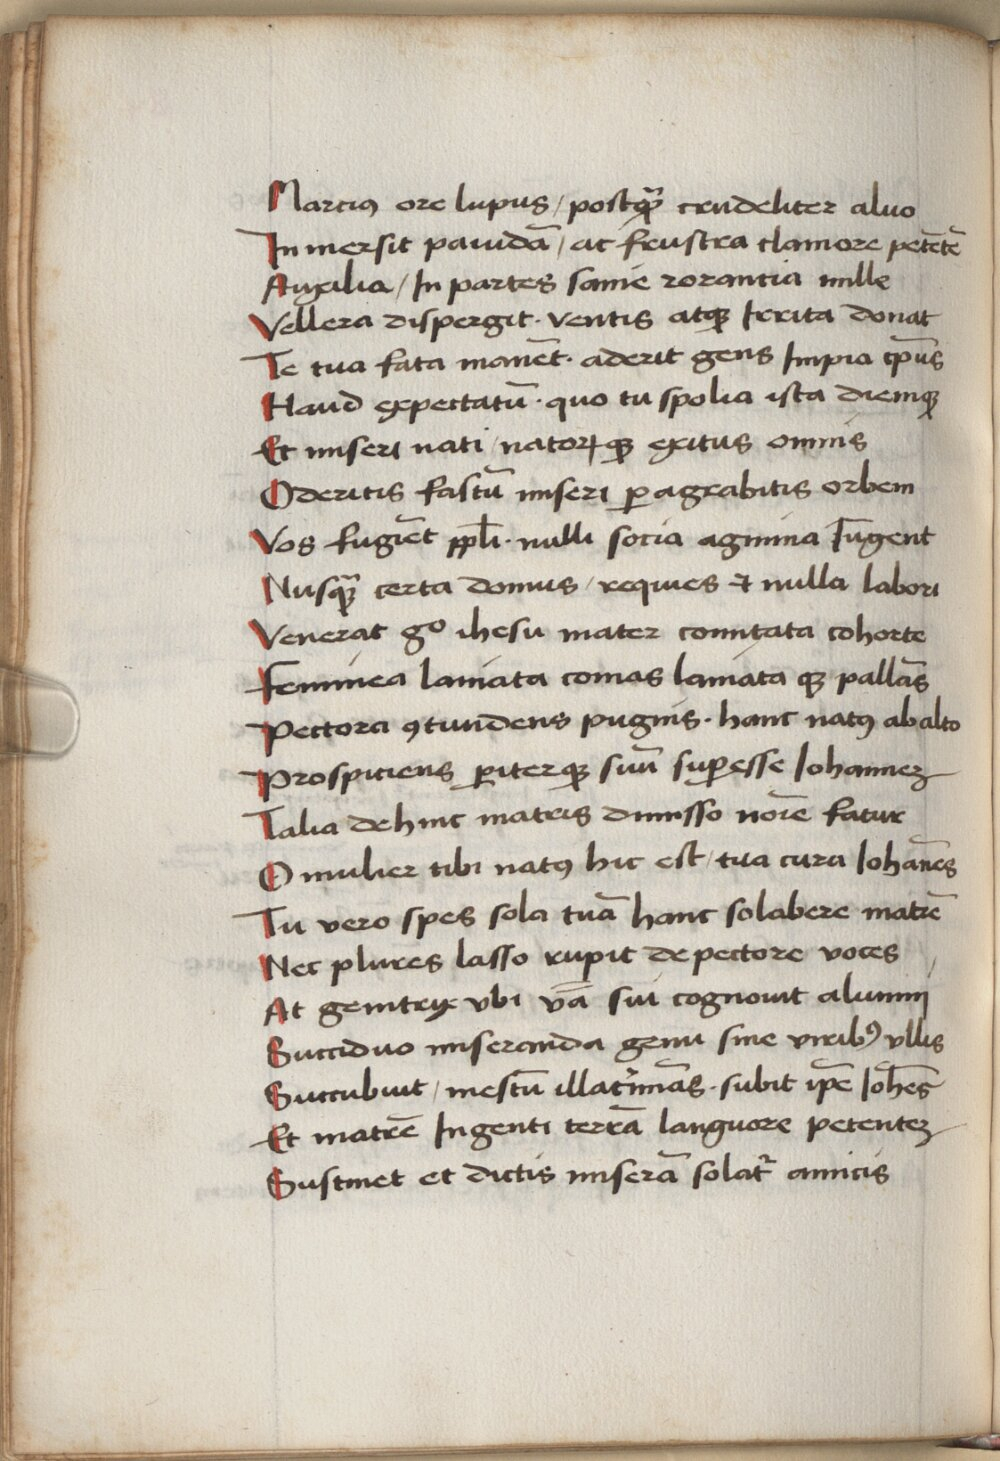 Marciꝰ ore lupus / postꝙ̃ crudeliter aluo
In mersit pauidā / ac frustra clamore petētē
Auxilia / In partes sanie rorantia mille
Vellera dispergit · ventis atqꝫ Irrita donat
Te tua fata manēt · aderit gens Impia tp̄us
Haud expectatū · quo tu spolia ista diemqꝫ
Et miseri nati / natoꝝqꝫ exitus omnis
Oderitis fastū miseri ꝑagrabitis orbem
Vos fugiēt pp̄li · nulli socia agmina Iūgent
Nusqꝫ̃ certa domus / requies ⁊ nulla labori
Venerat gͦ ihesu mater comitata cohorte
Feminea laniata comas laniata qꝫ pallās
Pectora ꝯtundens pugnis · hanc natꝰ ab alto
Prospiciens ꝑiterqꝫ suū suꝑesse Iohannez
Talia dehinc matris dimisso noīe fatur
O mulier tibi natꝰ hic est / tua cura Iohānes
Tu vero spes sola tuā hanc solabere matrē
Nec plures lasso rupit de pectore voces
At genitrix vbi v̄ā sui cognouit alumni
Succiduo miseranda genu sine viribꝰ vllis
Succubuit / mestū illac̓mās · subit ip̄e Ioh̄es
Et matrē Ingenti terrā languore petentez
Sustinet et dictis miserā solat᷑ amicis